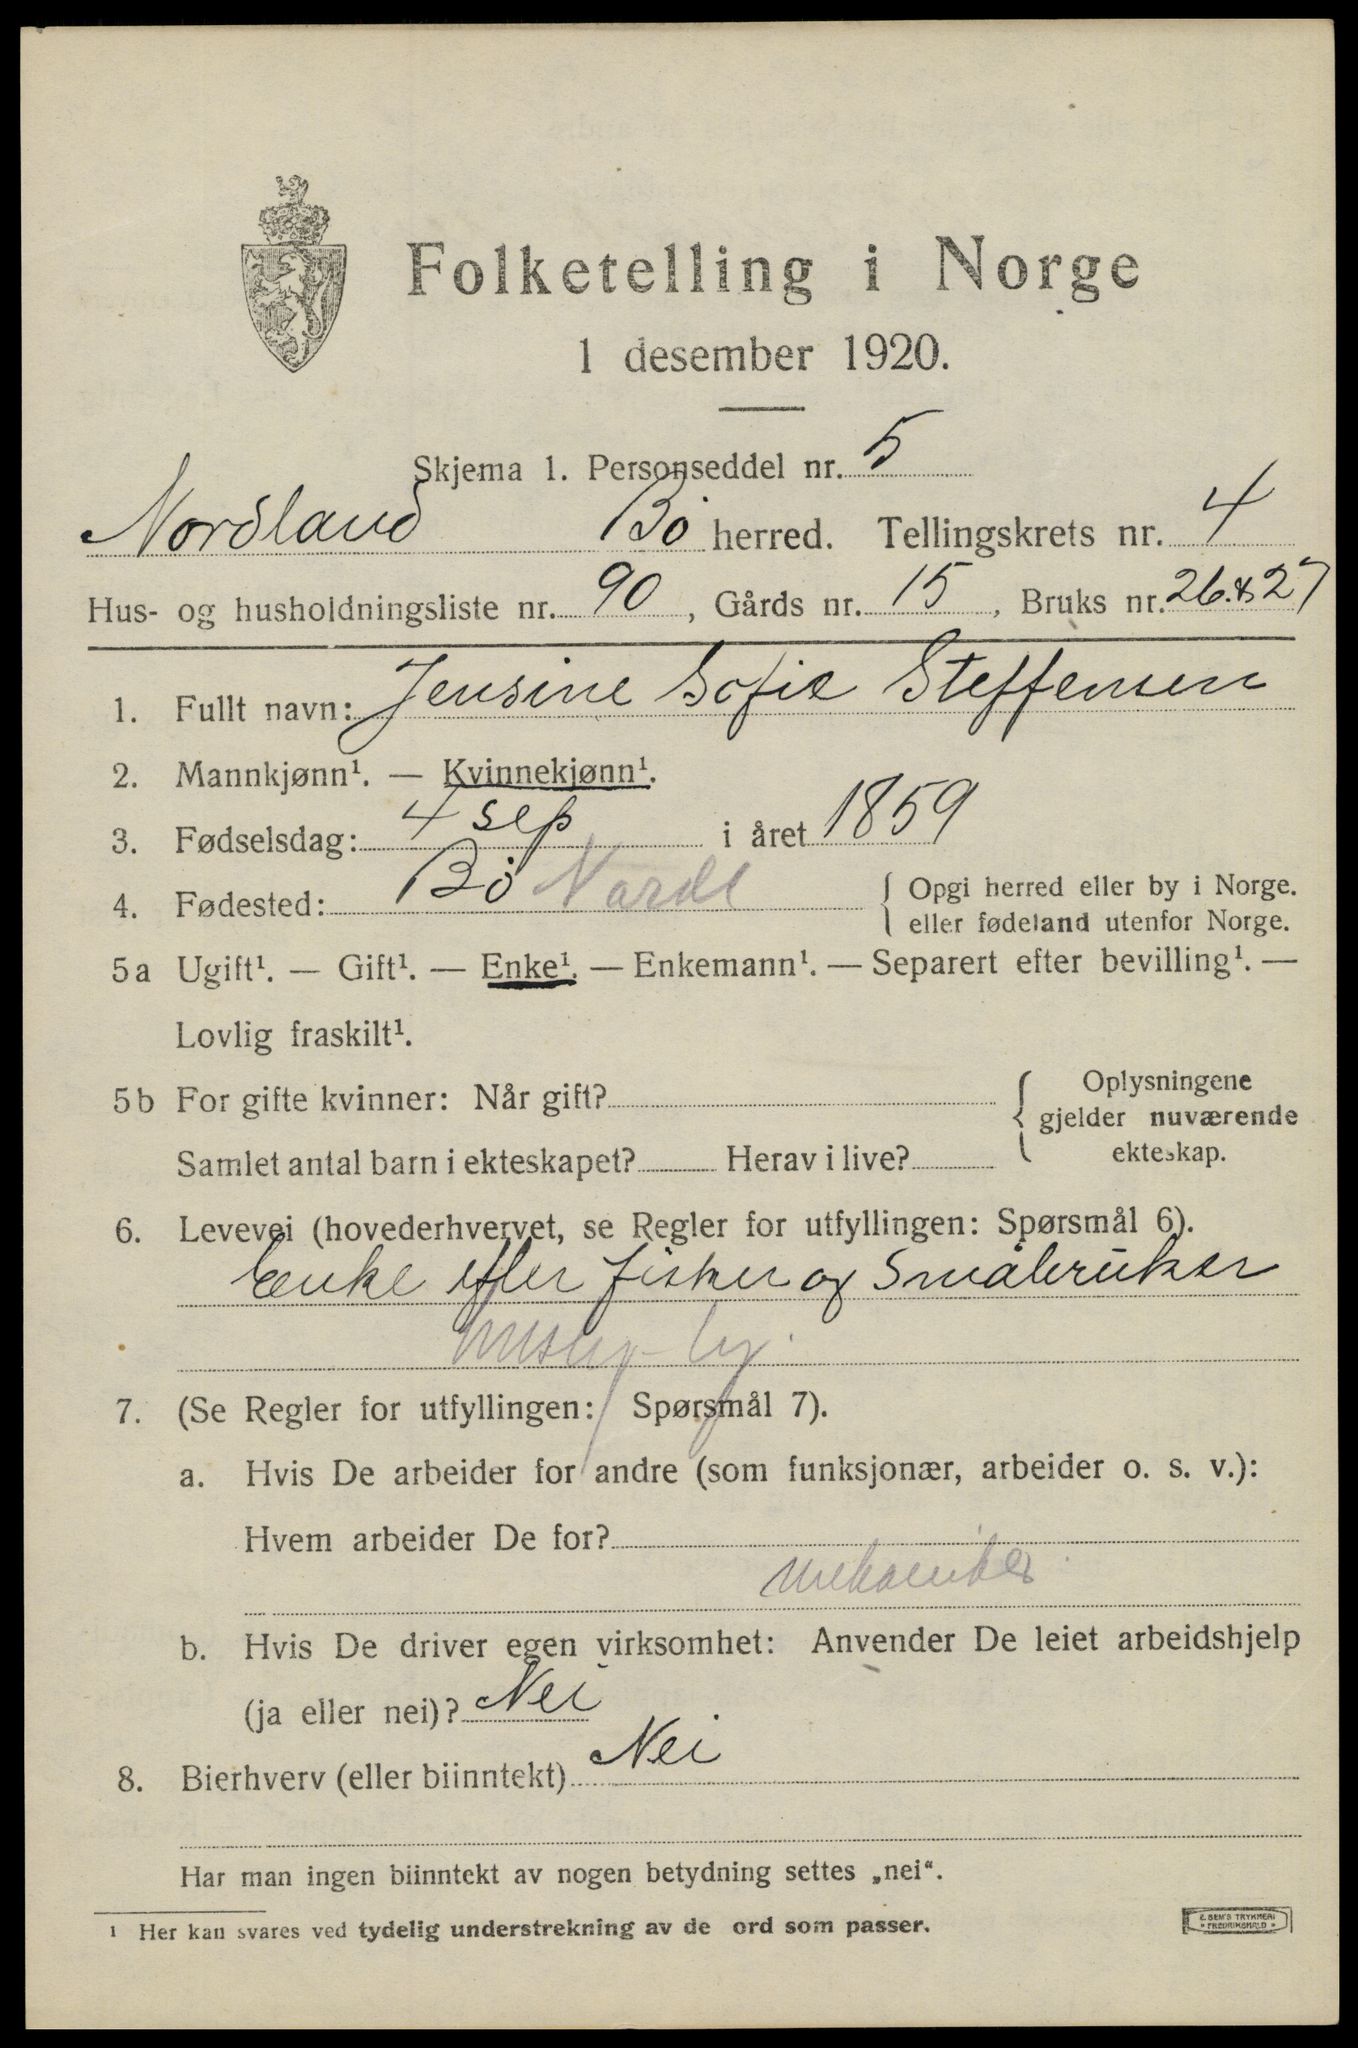 Folketelling i Norge
1 desember 1920.
Skjema 1. Personseddel nr. 5
Nordland Bø herred. Tellingskrets nr. 4
Hus- og husholdningsliste nr. 90, Gårds nr. 15, Bruks nr. 26 & 27
1. Fullt navn: Jensine Sofie Steffensen
2. Mannkjønn¹. — Kvinnekjønn¹.
3. Fødselsdag: 4 sep i året 1859
4. Fødested: Bø Nordl
{ Opgi herred eller by i Norge.
eller fødeland utenfor Norge.
5a Ugift¹. — Gift¹. — Enke¹. — Enkemann¹. — Separert efter bevilling¹. —
Lovlig fraskilt¹.
5b For gifte kvinner: Når gift?
Samlet antal barn i ekteskapet? Herav i live?
{ Oplysningene
gjelder nuværende
ekteskap.
6. Levevei (hovederhvervet, se Regler for utfyllingen: Spørsmål 6).
Enke efter fisker og Småbruker
7. (Se Regler for utfyllingen: Spørsmål 7).
a. Hvis De arbeider for andre (som funksjonær, arbeider o. s. v.):
Hvem arbeider De for?
b. Hvis De driver egen virksomhet: Anvender De leiet arbeidshjelp
(ja eller nei)? Nei
8. Bierhverv (eller biinntekt) Nei
Har man ingen biinntekt av nogen betydning settes „nei“.
¹ Her kan svares ved tydelig understrekning av de ord som passer.
E. SEM'S TRYKKERI
FREDRIKSHALD